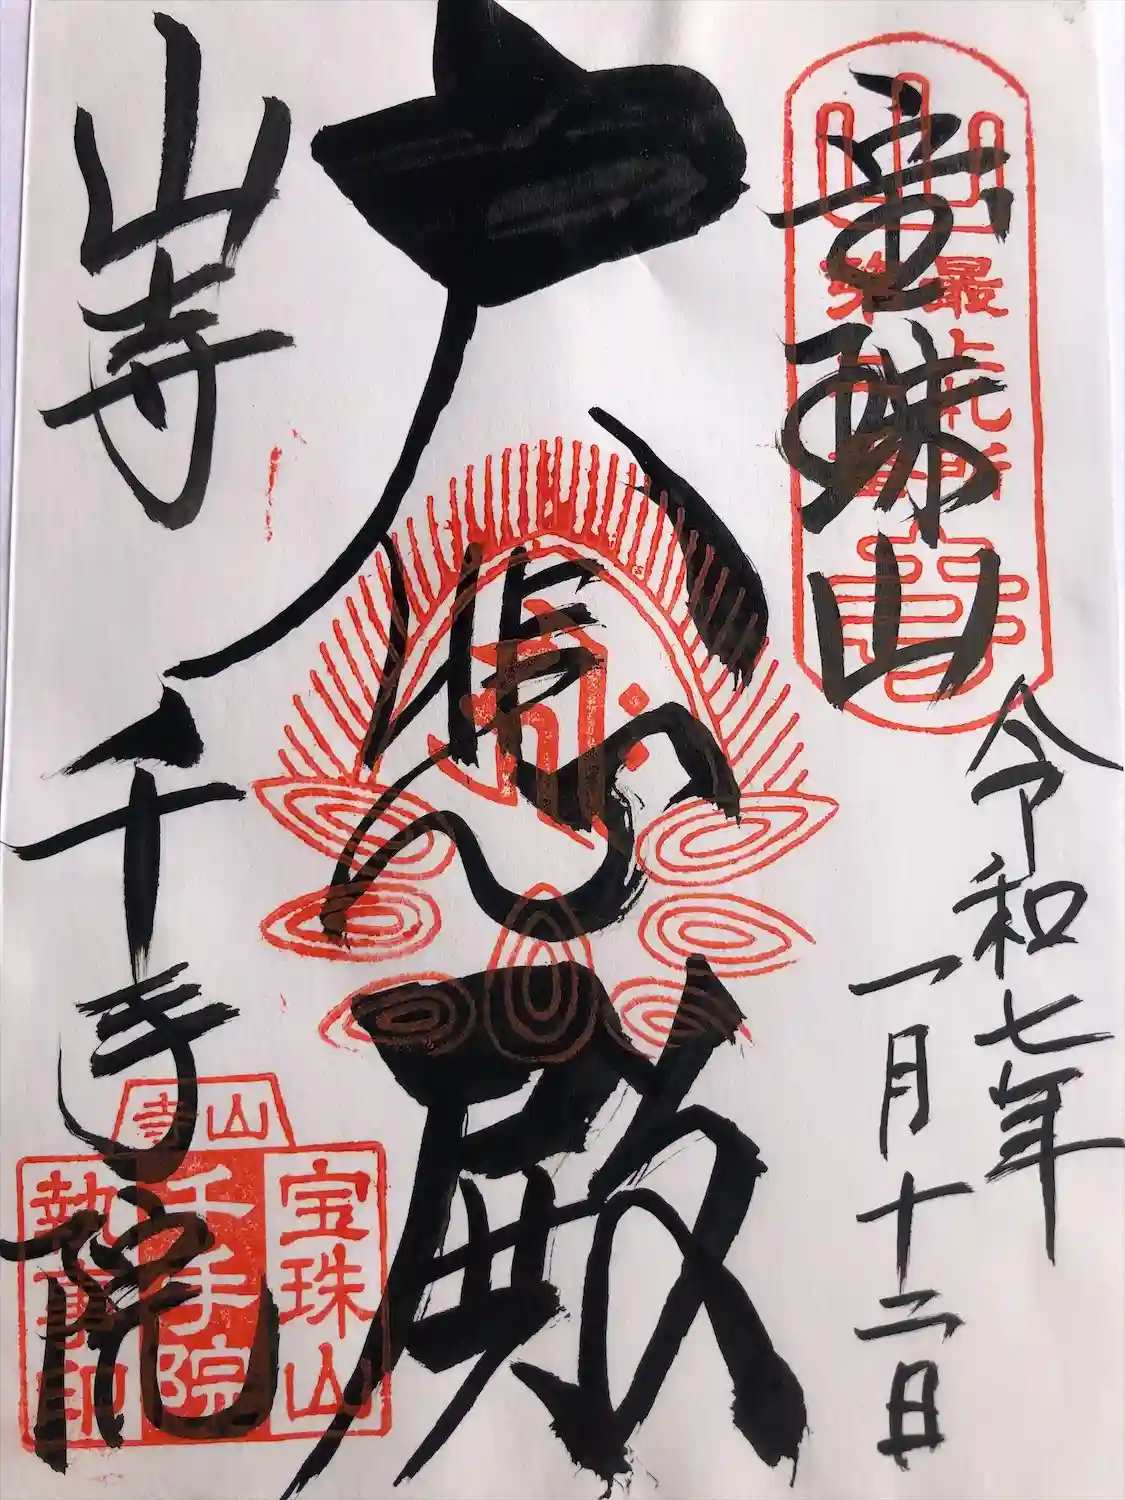 宝珠山
最上札所
第二番
令和七年
一月十二日
大悲殿
山寺
千手院
山寺
宝珠山
千手院
執事印